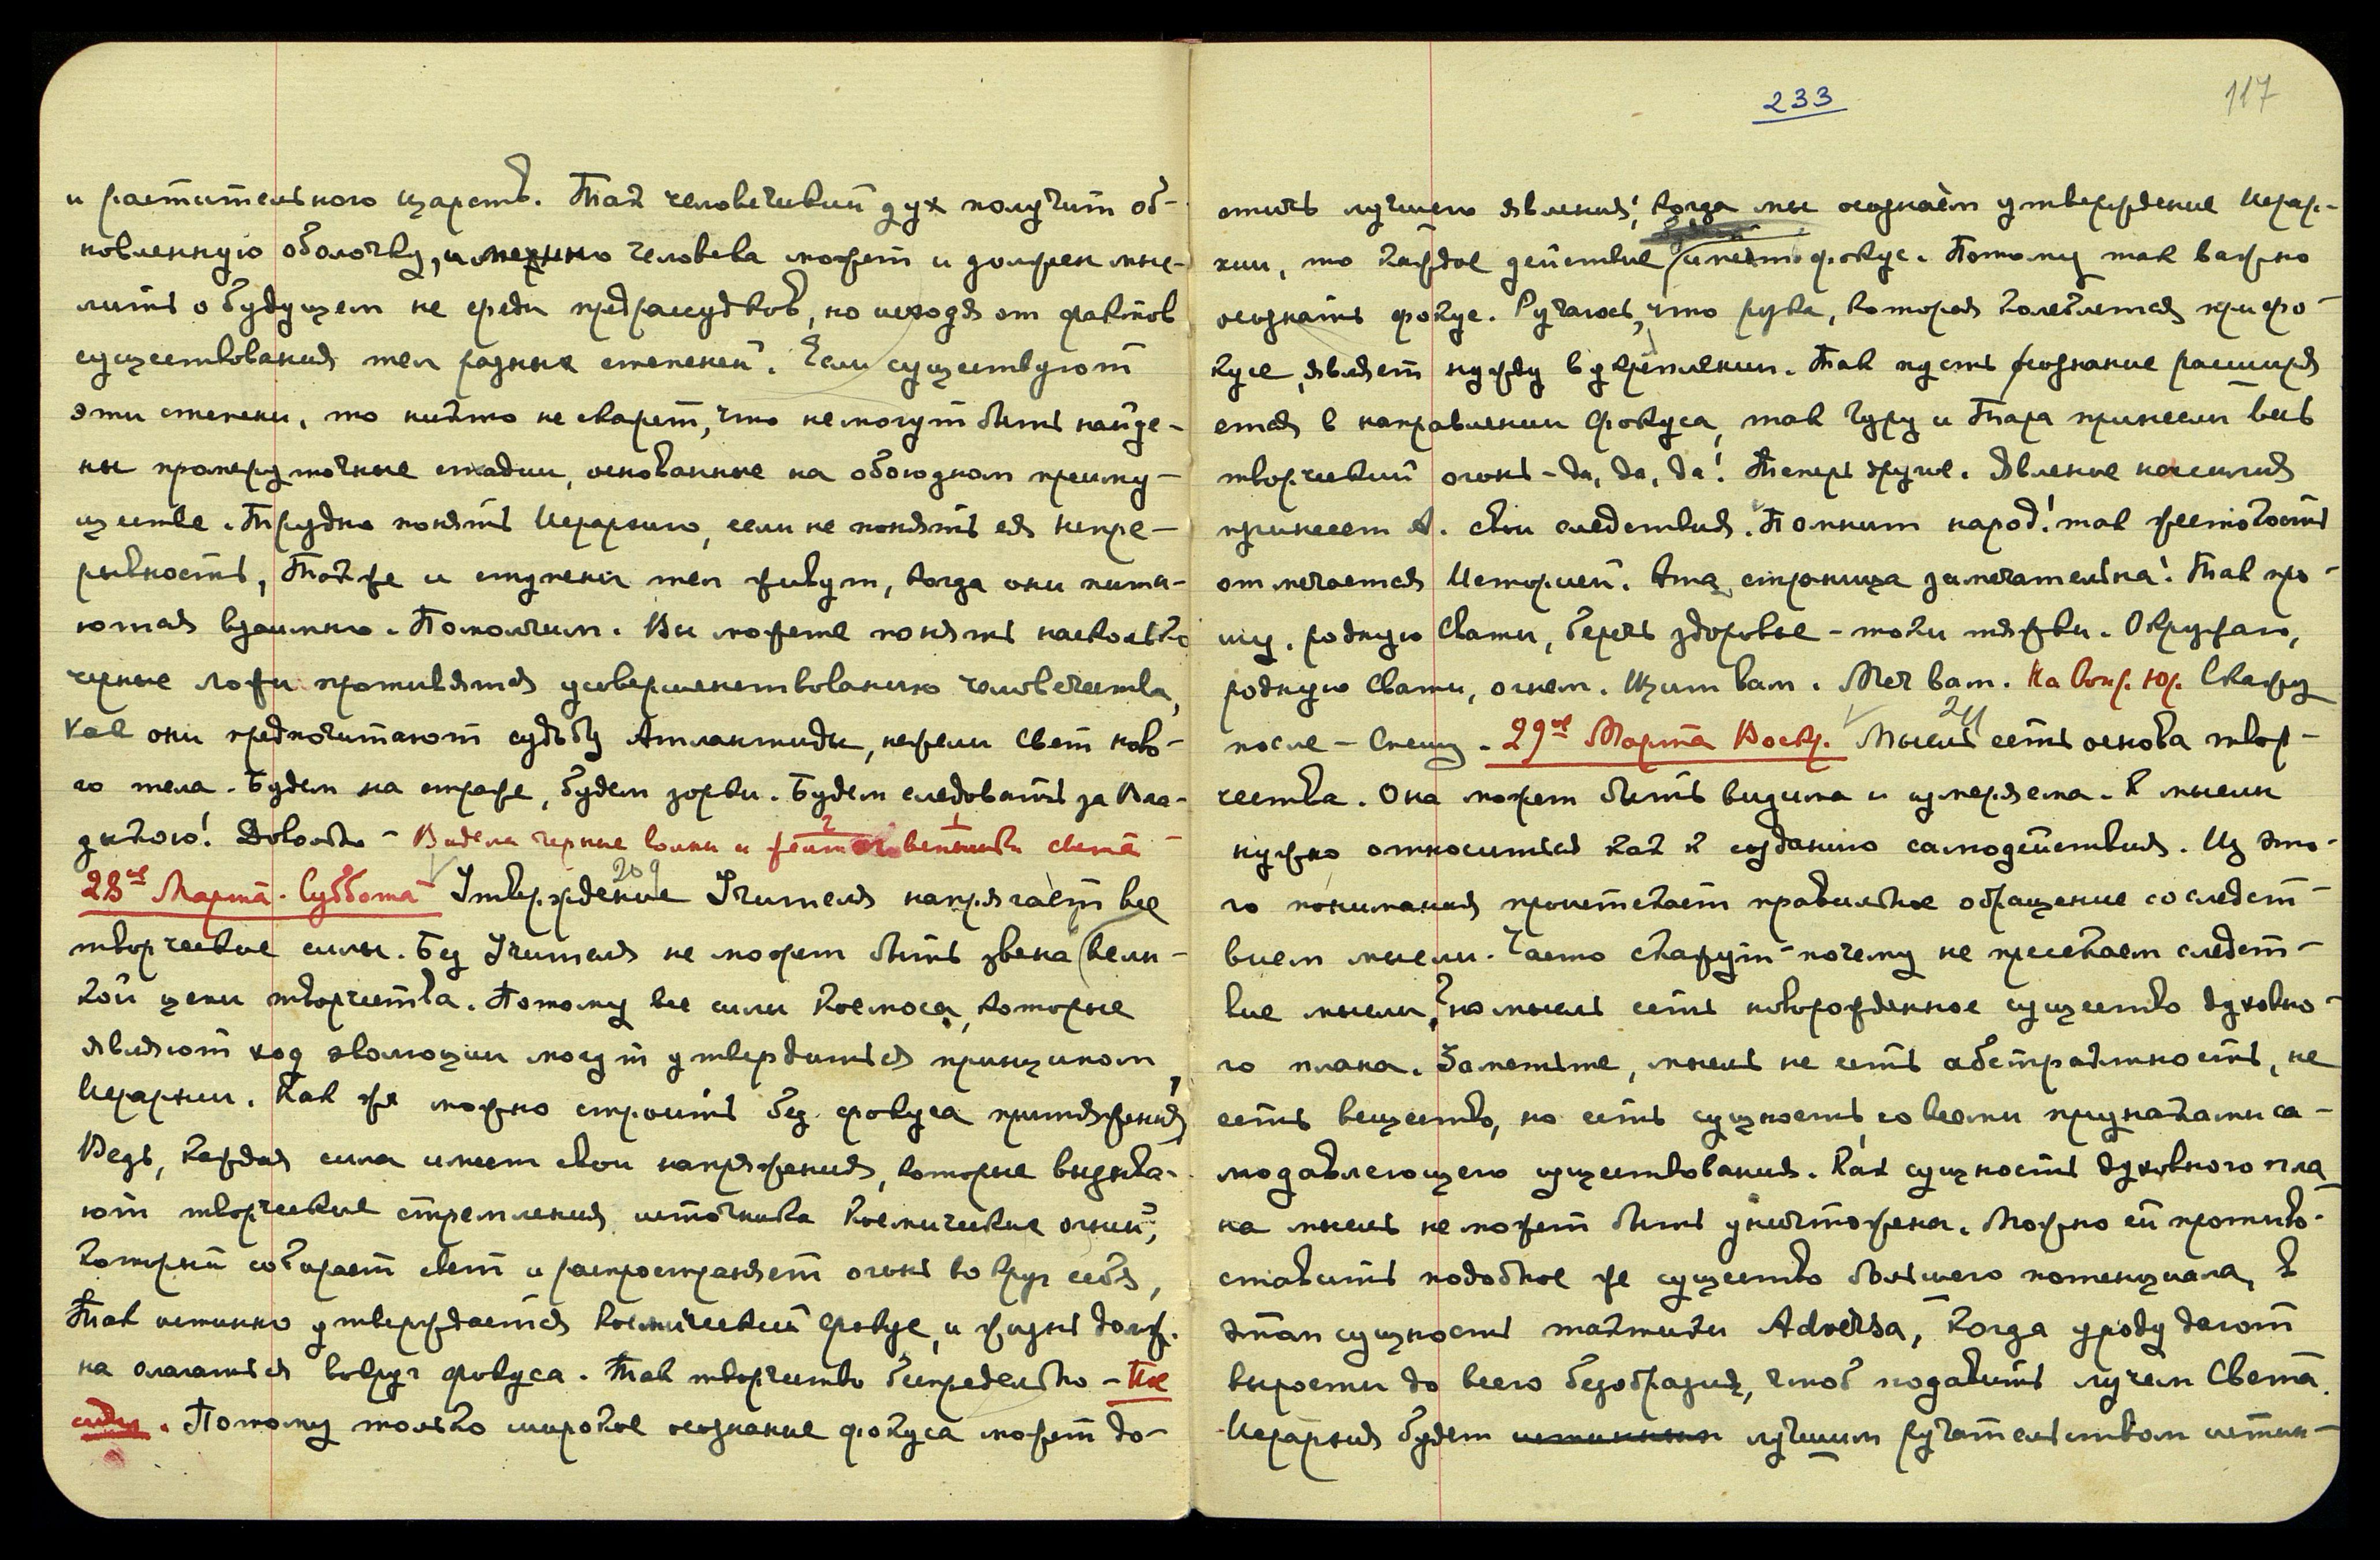 и растительного царств. Так человеческий дух получит об-
новленную оболочку, и человека может и должен мыс-
лить о будущем не среди предрассудков, но исходя от фактов
существования тел разных степеней. Если существуют
эти степени, то никто не скажет, что не могут быть найде-
ны промежуточные стадии, основанные на обоюдном преиму-
ществе. Трудно понять Иерархию, если не понять ея непре-
рывность, Также и ступени тел живут, когда они пита-
ются взаимно. Помолчим. Вы можете понять насколько
черные ложи противятся усовершенствованию человечества,
как они предпочитают судьбу Атлантиды, нежели Свет ново-
го тела. Будем на страже, будем зорки. Будем следовать за Вла-
дыкою! Довольно - Видела черные волны и света -
28ое Марта. Суббота - 209 Утверждение Учителя напрягает все
творческие силы. Без Учителя не может быть звена вели-
кой цепи творчества. Потому все силы Космоса, которые
являют ход эволюции могут утвердиться принципом
Иерархии. Как же можно строить без фокуса притяжения,
Ведь, каждая сила имеет свои напряжения, которые вызыва-
ют творческие стремления источника Космические огни,
который собирает свет и распространяет огонь вокруг себя,
Так истинно утверждается Космический фокус, и жизнь долж.
на слагаться вокруг фокуса. Так творчество беспредельно -
Потому только широкое осознание фокуса может до-
233
117
стичь лучшего явления! Когда мы осознаём утверждение Иерар-
хии, то каждое действие имеет фокус. Потому так важно
осознать фокус. Ручаюсь, что рука, которая колеблется при фо-
кусе, являет нужду в укреплении. Так пусть сознание расширя
ется в направлении фокуса, так Гуру и Тара принесли весь
творческий огонь - да, да, да! Теперь другое. Явление насилия
принесет А. свои следствия. Помнит народ! так жестокость
отмечается Историей. Эта страница замечательна! Так про-
шу, родную Свати, беречь здоровье - токи тяжки. Окружаю,
родную Свати, огнем. Щит вам. Меч вам. На вопр. Юр. Скажу
после - Спешу - 29ое Марта Воскр. 211 Мысль есть основа твор-
чества. Она может быть видима и измеряема. К мысли
нужно относиться как к созданию самодействия. Из это-
го понимания проистекает правильное обращение со следст-
вием мысли. Часто скажут - почему не пресекаем следст-
вие мысли? но мысль есть новорожденное существо духовно-
го плана. Заметьте, мысль не есть абстрактность, не
есть вещество, но есть сущность со всеми признаками са-
модовлеющего существования. Как сущность духовного пла
на мысль не может быть уничтожена. Можно ей противо-
ставить подобное же существо большего потенциала, в
этом сущность тактики Adversa, когда уроду дают
вырости до всего безобразия, чтоб подавить лучем Света.
Иерархия будет истинным лучшим ручательством истин-